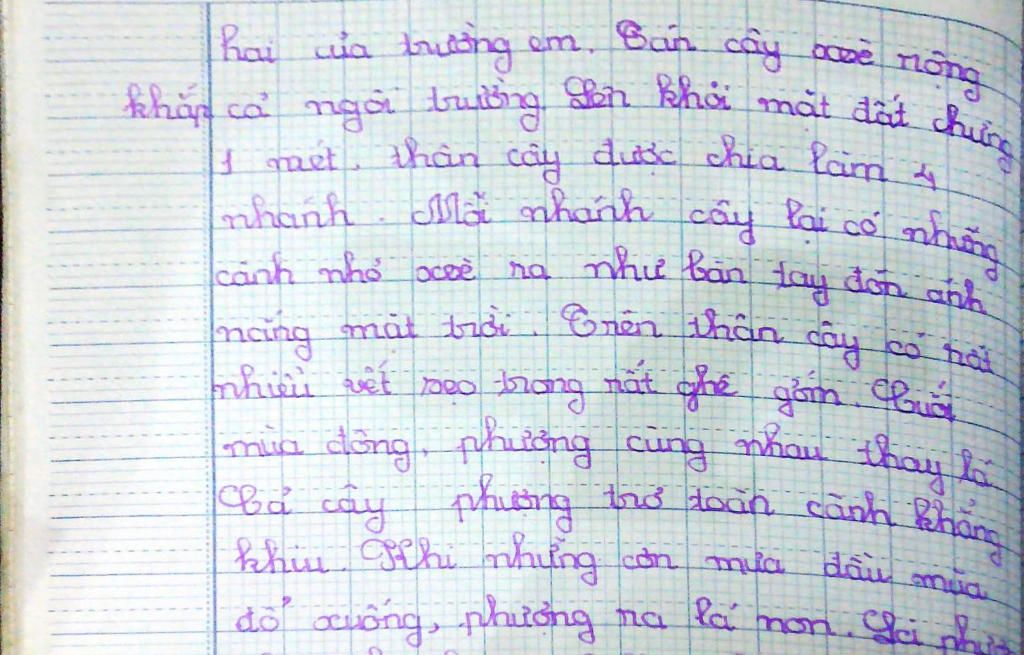 hai của trường em. Tán cây xoè rộng
khắp cả ngôi trường. Lên khỏi mặt đất chừng
1 mét, thân cây được chia làm 4
nhánh. Mỗi nhánh cây lại có những
cành nhỏ xoè ra như bàn tay đón ánh
nắng mặt trời. Trên thân cây có rất
nhiều vết sẹo trong rất ghê gớm. Cuối
mùa đông, phượng cùng nhau thay lá.
Cả cây phượng trơ toàn cành khẳng
khiu. Khi những cơn mưa đầu mùa
đổ xuống, phượng ra lá non. Lá